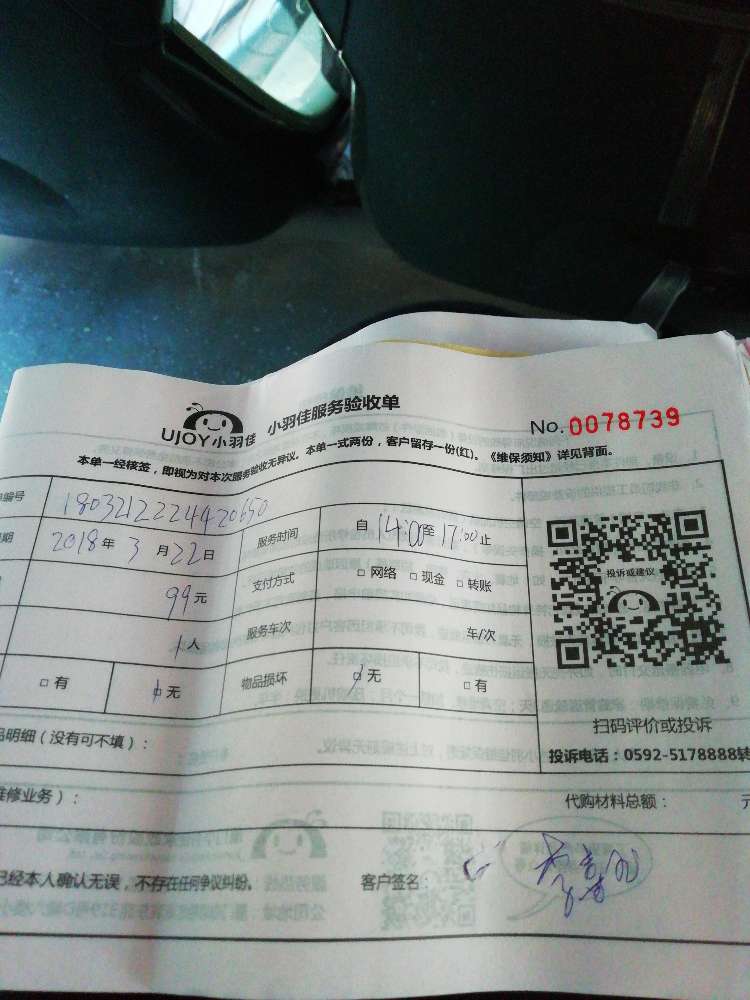 UJOY小羽佳 小羽佳服务验收单 No.0078739
本单一经核签，即视为对本次服务验收无异议。本单一式两份，客户留存一份(红)。《维保须知》详见背面。
编号 1803212224420650
期 2018年3月22日 服务时间 自14:00至17:00止
99元 支付方式 □网络 □现金 □转账
1人 服务车次 车/次
□有 □无 物品损坏 □无 □有
投诉或建议
扫码评价或投诉
投诉电话：0592-5178888转
品明细（没有可不填）：
维修业务）： 代购材料总额： 元
已经本人确认无误，不存在任何争议纠纷。 客户签名：